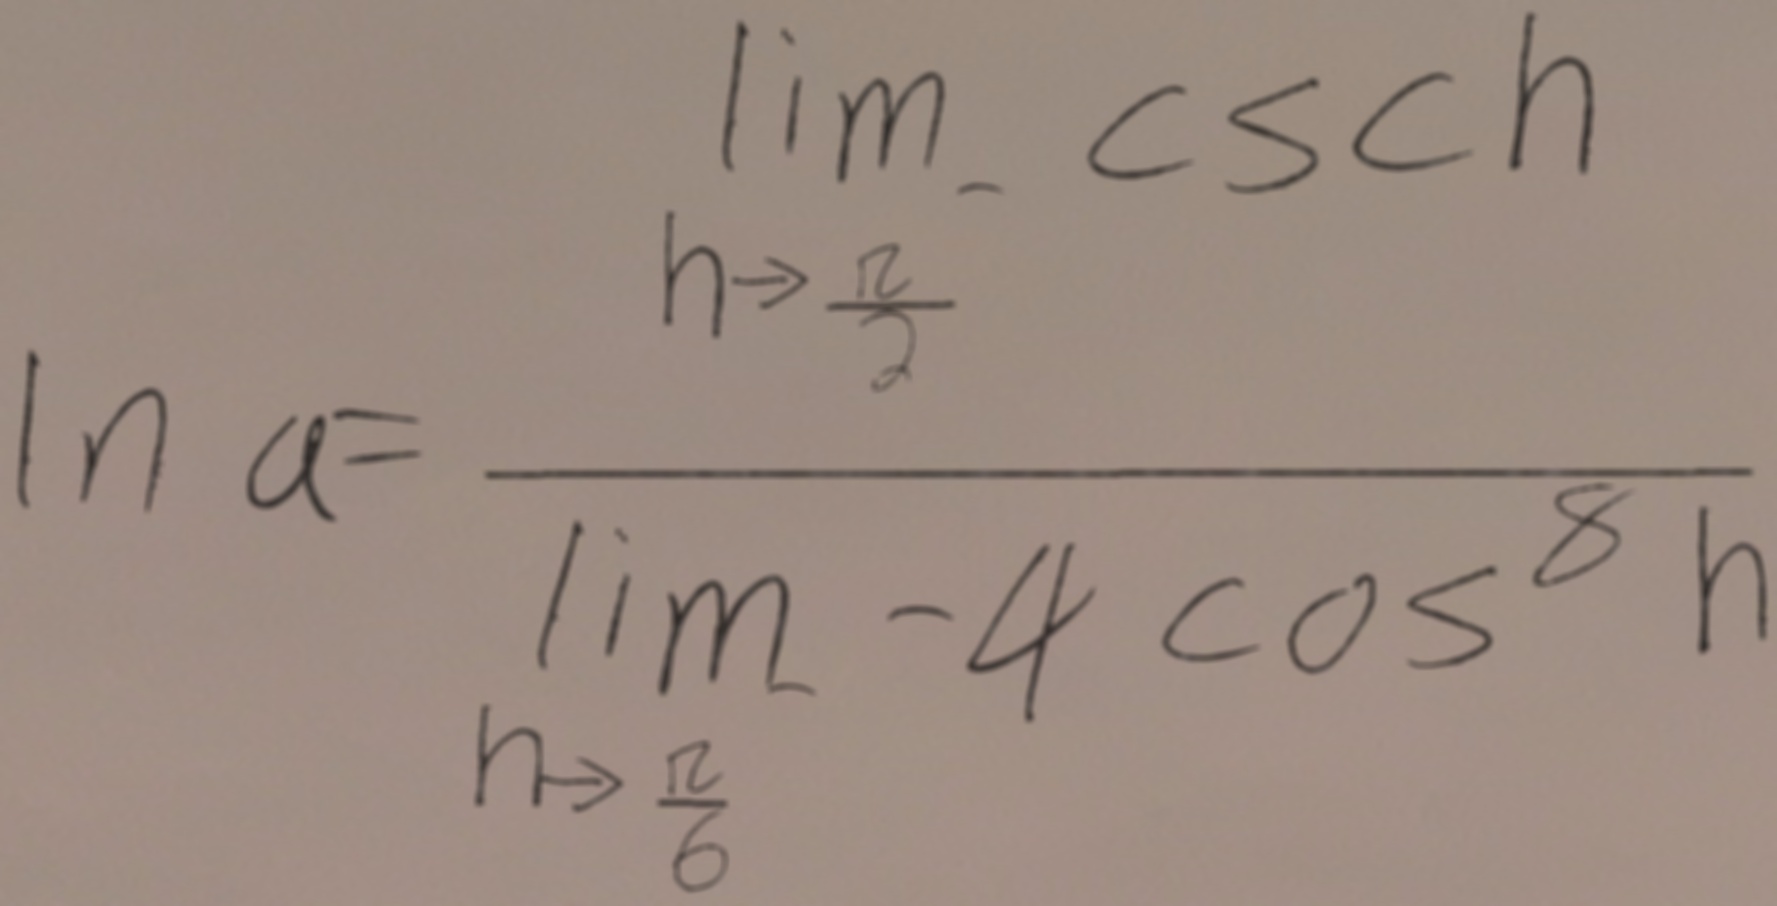 ln a = \frac{\lim_{h \to \frac{\pi}{2}^-} csc h}{\lim_{h \to \frac{\pi}{6}^-} -4 cos^8 h}